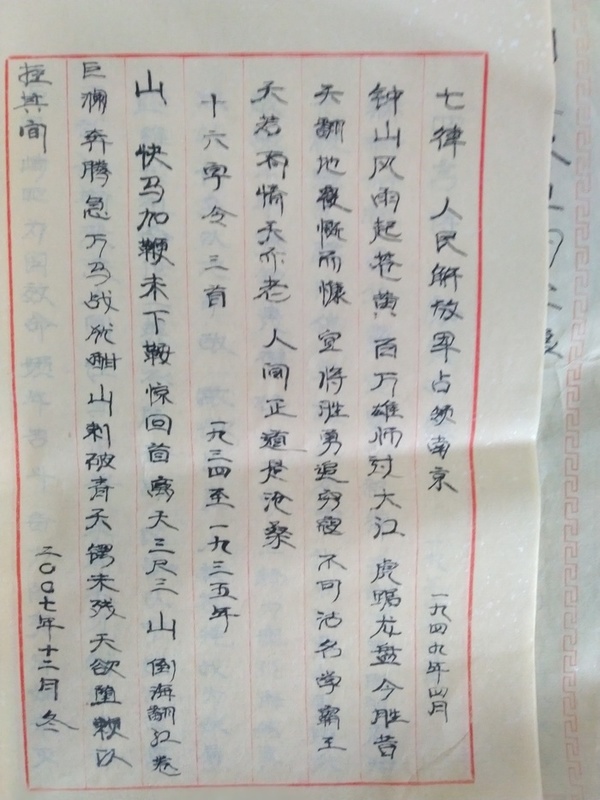 七律 人民解放军占领南京 一九四九年四月
钟山风雨起苍黄 百万雄师过大江 虎踞龙盘今胜昔
天翻地覆慨而慷 宜将胜勇追穷寇 不可沽名学霸王
天若有情天亦老 人间正道是沧桑
十六字令三首 一九三四至一九三五年
山 快马加鞭未下鞍惊回首离天三尺三 山 倒海翻江卷
巨澜奔腾急万马战犹酣 山刺破青天锷未残 天欲堕赖以
拄其间 二〇〇七年十二月 冬